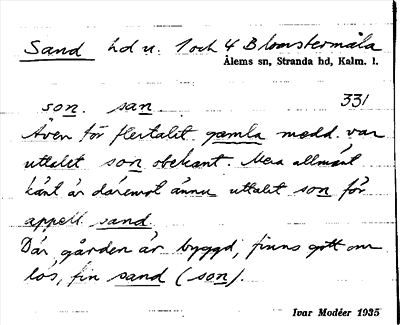 Sand hd u. 1 och 4 Blomstermåla
Ålems sn, Stranda hd, Kalm. l.
son. san 331
Även för flertalet gamla medd. var
uttalet son obekant. Mera allmänt
känt är däremot ännu uttalet son för
appell. sand.
Där gården är byggd, finns gott om
lös, fin sand (son).
Ivar Modéer 1935